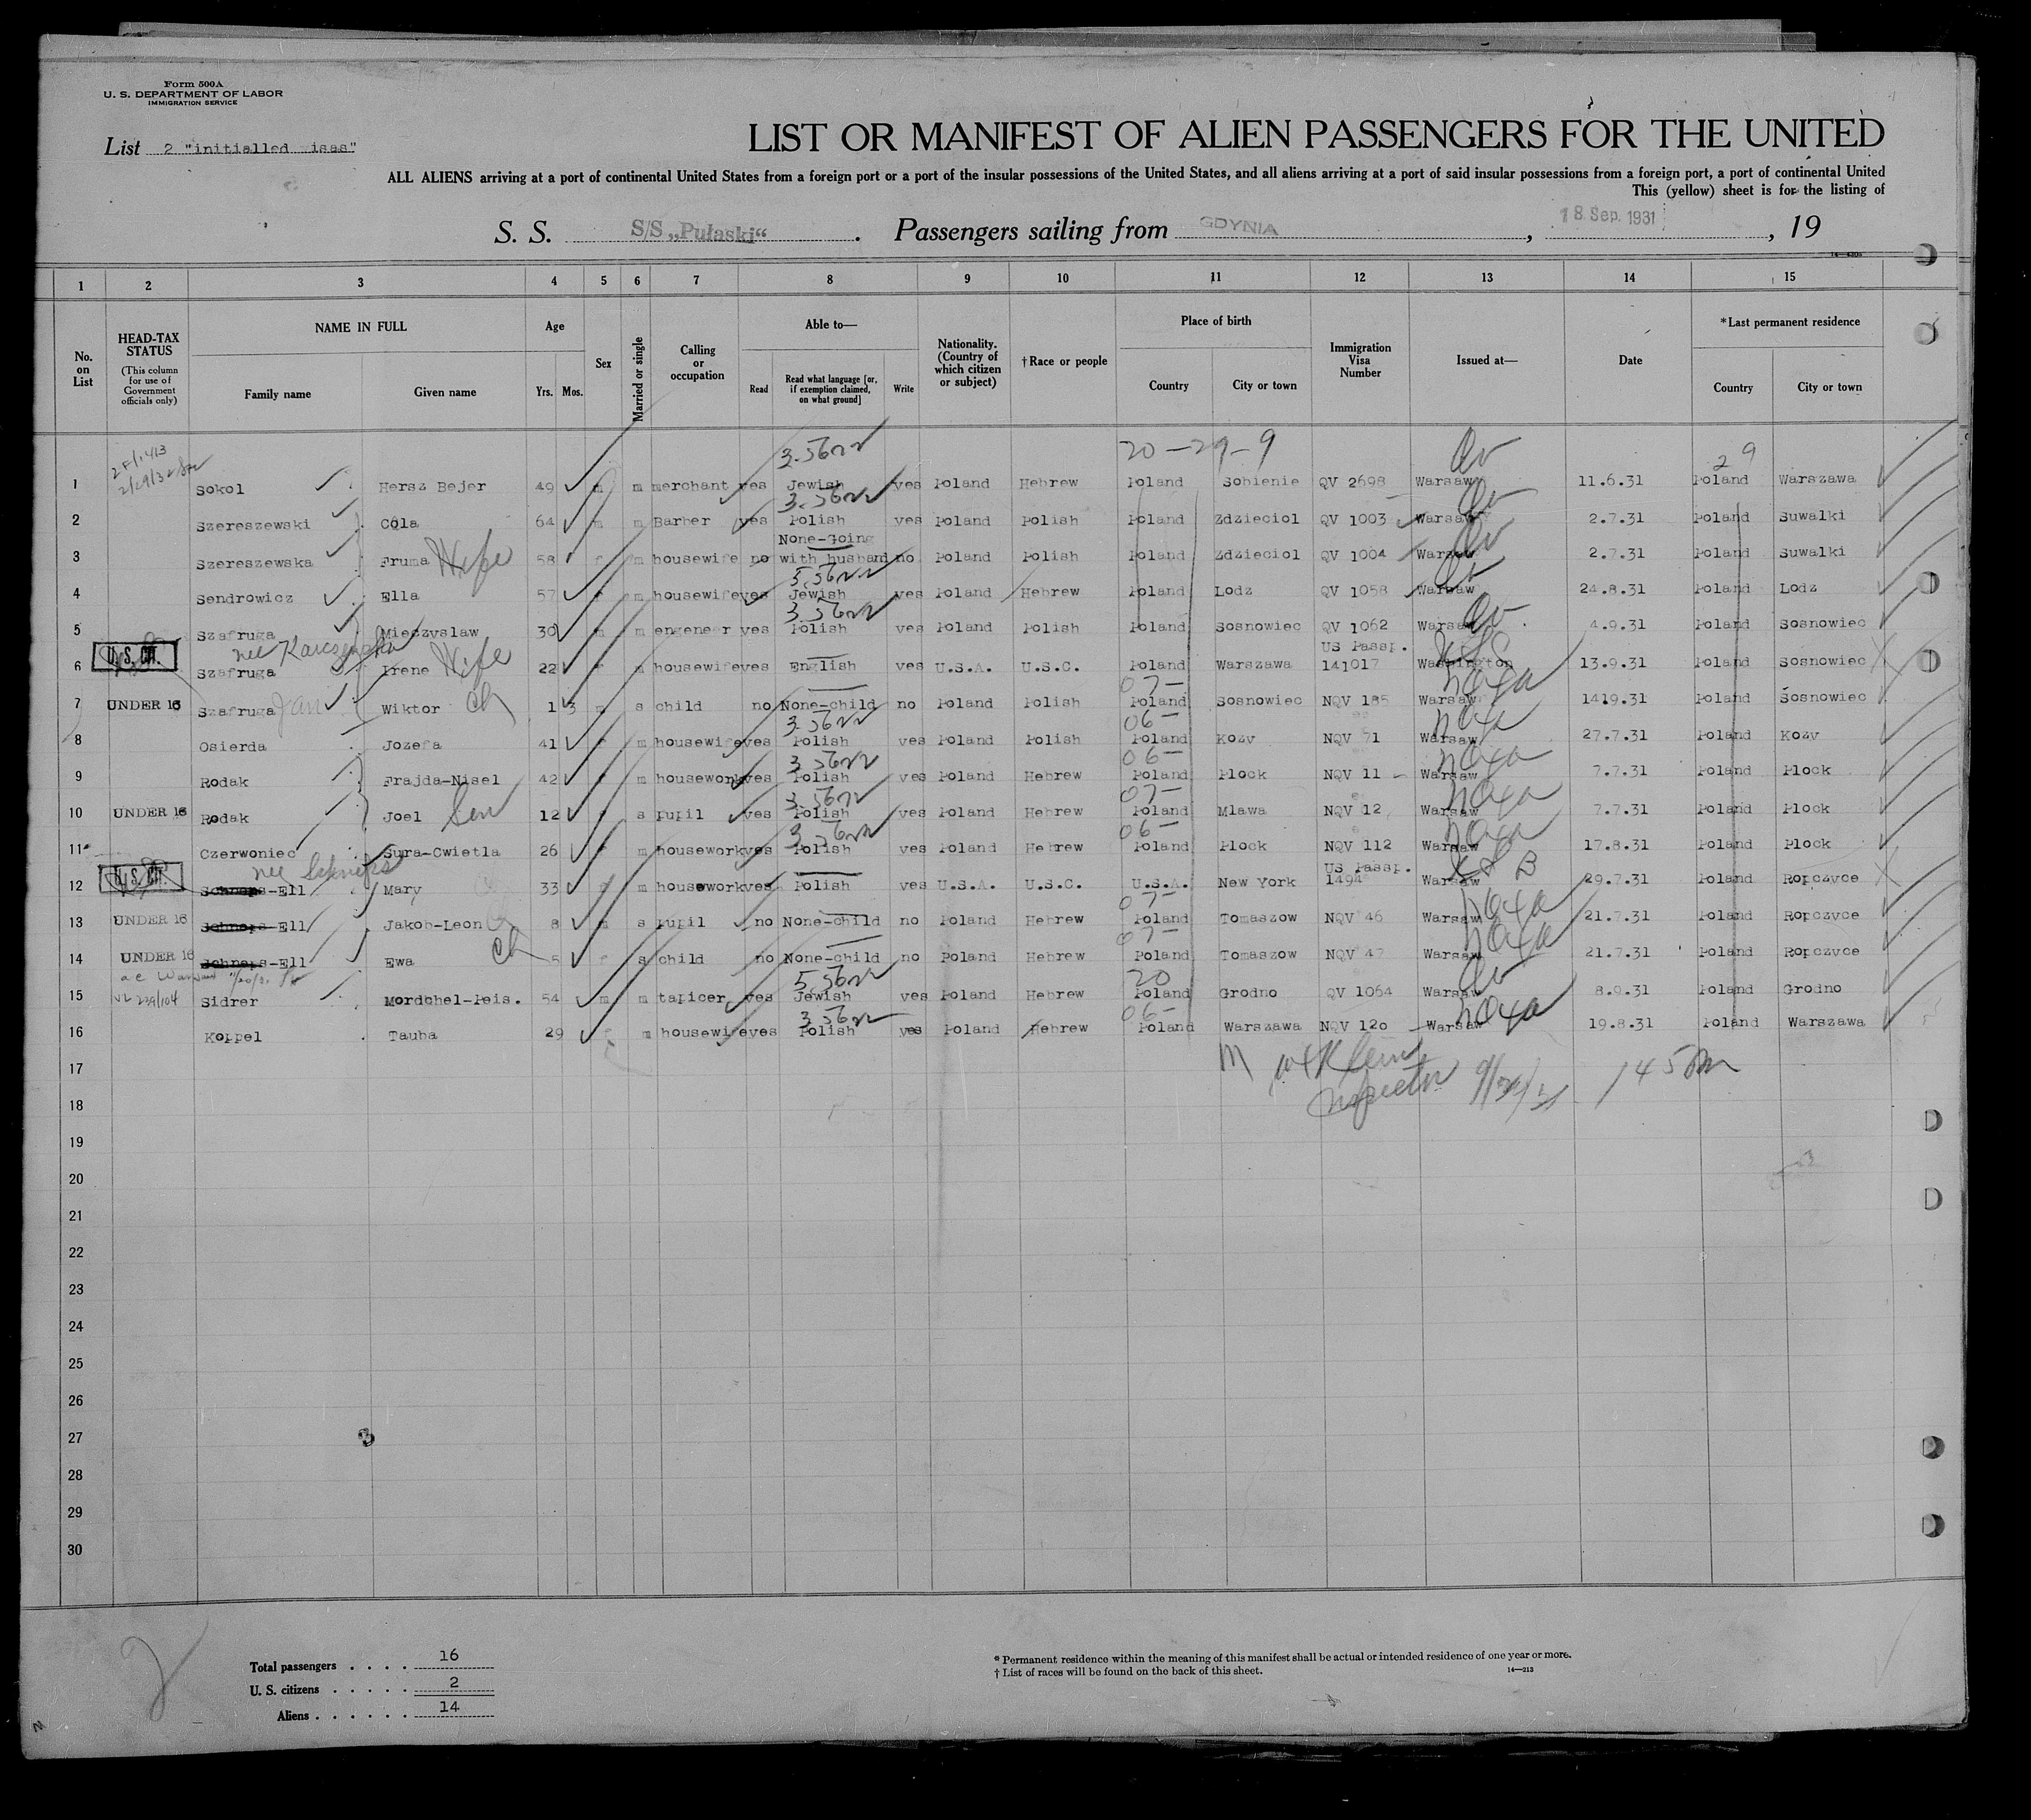 Form 500A
U. S. DEPARTMENT OF LABOR
IMMIGRATION SERVICE
List 2 "initialled isas"
LIST OR MANIFEST OF ALIEN PASSENGERS FOR THE UNITED
ALL ALIENS arriving at a port of continental United States from a foreign port or a port of the insular possessions of the United States, and all aliens arriving at a port of said insular possessions from a foreign port, a port of continental United
This (yellow) sheet is for the listing of
S. S. S/S „Pułaski“ . Passengers sailing from GDYNIA , 18. Sep. 1931 , 19
1 2 3 4 5 6 7 8 9 10 11 12 13 14 15
No. on List
HEAD-TAX STATUS
(This column for use of Government officials only)
NAME IN FULL
Family name Given name
Age
Yrs. Mos.
Sex
Married or single
Calling or occupation
Able to—
Read Read what language [or, if exemption claimed, on what ground] Write
Nationality. (Country of which citizen or subject)
†Race or people
Place of birth
Country City or town
Immigration Visa Number
Issued at—
Date
*Last permanent residence
Country City or town
20-29-9 Qv 29
1 Sokol Hersz Bejer 49 m m merchant yes Jewish yes Poland Hebrew Poland Sobienie QV 2698 Warsaw 11.6.31 Poland Warszawa
2 Szereszewski Cola 64 m m Barber yes Polish yes Poland Polish Poland Zdzieciol QV 1003 Warsaw 2.7.31 Poland Suwalki
None-Going
3 Szereszewska Fruma Wife 58 f m housewife no with husband no Poland Polish Poland Zdzieciol QV 1004 Warsaw 2.7.31 Poland Suwalki
4 Sendrowicz Ella 57 f m housewife yes Jewish yes Poland Hebrew Poland Lodz QV 1058 Warsaw 24.8.31 Poland Lodz
5 Szafruga Mieczyslaw 30 m m engeneer yes Polish yes Poland Polish Poland Sosnowiec QV 1062 Warsaw 4.9.31 Poland Sosnowiec
U.S. CIT. nee US Passp.
6 Szafruga Irene Wife 22 f m housewife yes English yes U.S.A. U.S.C. Poland Warszawa 141017 Washington 13.9.31 Poland Sosnowiec
7 UNDER 16 Szafruga Jan Wiktor Ch 1 3 m s child no None-child no Poland Polish Poland Sosnowiec NQV 185 Warsaw 1419.31 Poland Sosnowiec
8 Osierda Jozefa 41 f m housewife yes Polish yes Poland Polish Poland Kozy NQV 71 Warsaw 27.7.31 Poland Kozy
9 Rodak Frajda-Nisel 42 f m housework yes Polish yes Poland Hebrew Poland Plock NQV 11 Warsaw 7.7.31 Poland Plock
10 UNDER 16 Rodak Joel Son 12 s pupil yes Polish yes Poland Hebrew Poland Mlawa NQV 12 Warsaw 7.7.31 Poland Plock
11 Czerwoniec Sura-Cwietla 26 f m housework yes Polish yes Poland Hebrew Poland Plock NQV 112 Warsaw 17.8.31 Poland Plock
U.S. CIT. nee Schneps US Passp.
12 Schneps-Ell Mary 33 f m housework yes Polish yes U.S.A. U.S.C. U.S.A. New York 1494 Warsaw 29.7.31 Poland Ropczyce
13 UNDER 16 Schneps-Ell Jakob-Leon 8 m s pupil no None-child no Poland Hebrew Poland Tomaszow NQV 46 Warsaw 21.7.31 Poland Ropczyce
14 UNDER 16 Schneps-Ell Ewa Ch 5 f s child no None-child no Poland Hebrew Poland Tomaszow NQV 47 Warsaw 21.7.31 Poland Ropczyce
15 Sidrer Mordchel-Leis. 54 m m tapicer yes Jewish yes Poland Hebrew Poland Grodno QV 1064 Warsaw 8.9.31 Poland Grodno
16 Koppel Tauba 29 f m housewife yes Polish yes Poland Hebrew Poland Warszawa NQV 120 Warsaw 19.8.31 Poland Warszawa
17
Inspector
18
19
20
21
22
23
24
25
26
27
28
29
30
Total passengers . . . . 16
U. S. citizens . . . . . 2
Aliens . . . . . . 14
* Permanent residence within the meaning of this manifest shall be actual or intended residence of one year or more.
† List of races will be found on the back of this sheet. 14—213